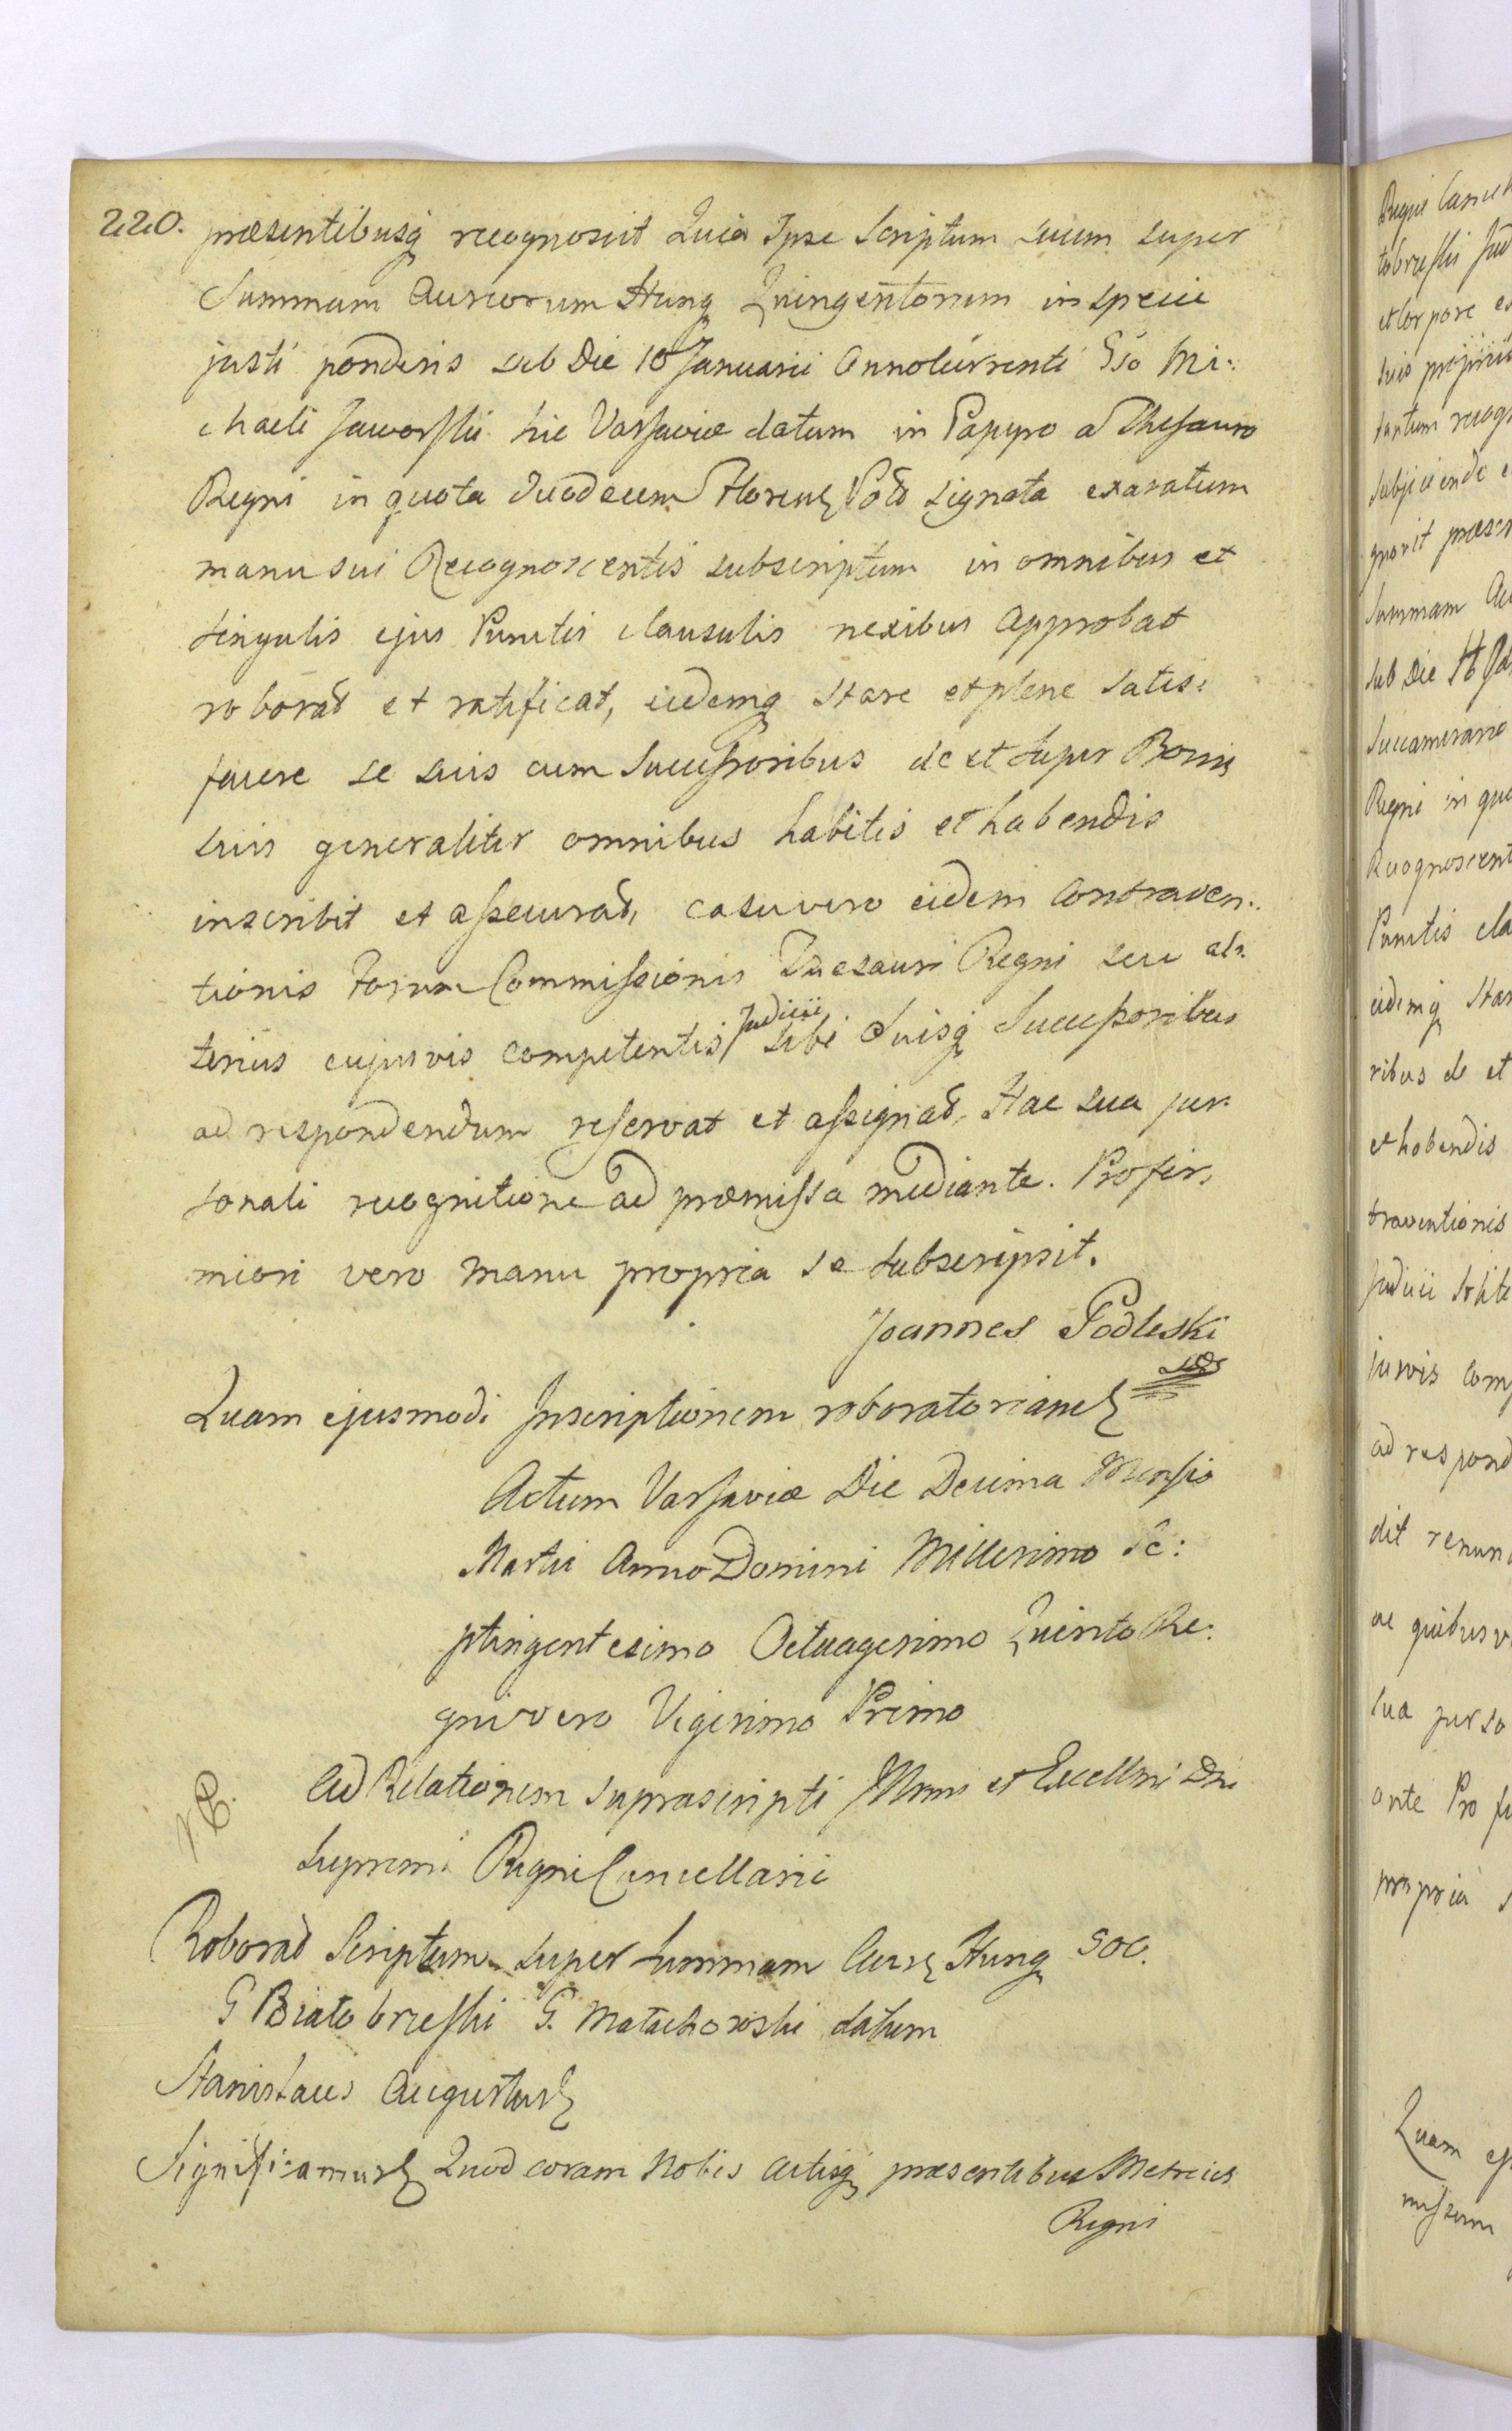 220. præsentibusq recognovit Quia Ipse Scriptum suum super
Summam Aureorum Hung Quingentorum in specie
justi ponderis sub Die 10 Januarii Anno Currenti Gso Mi:
chaeli Jaworski hic Varsaviæ datum in Papyro a Thesauro
Regni in quota Duodecem Floren Pol signata exaratum
manu sui Recognoscentis subscriptum in omnibus et
singulis ejus Punctis clausulis nexibus approbat
roborat et ratificat, iidemq stare et plene satis:
facere se suis cum Successoribus de et super Bonis
suis generaliter omnibus habitis et habendis
inscribit et assecurat, casu vero eidem Contraven:
tionis Forum Commissionis Thesauri Regni seu al:
terius cujusvis competentis Judicii sibi suisq Successoribus
ad respondendum reservat et assignat, Hac sua per:
sonali recognitione ad præmissa mediante. Pro fir:
miori vero manu propria se subscripsit.
Joannes Podleski
Quam ejusmodi Inscriptionem roboratoriam
Actum Varsaviæ Die Decima Mensis
Martii Anno Domini Millesimo Se:
ptingentesimo Octuagesimo Quinto Re:
gni vero Vigesimo Primo
Ad Relationem suprascripti Illmi et Excellmi Dni
Supremi Regni Cancellarii
Roborat Scriptum super summam Aur Hung 500.
G Białobrzeski G. Małachowski datum
Stanislaus Augustus
Significamus Quod coram Nobis Actisq præsentibus Metrices
Regni
Regni Cancel
tobrzeski Jud
et Corpore
suis propriis
tantum recog
subjiciendo
gnovit præsen
Summam Au
sub Die
Succamerario
Regni in quo
Recognoscent
Punctis cla
iidemq star
ribus de et
et habendis
traventionis
Judicii
jusvis com
ad respond
dit renun
ac quibusv
sua perso
ante Pro fi
propria s
Quam ej
missum